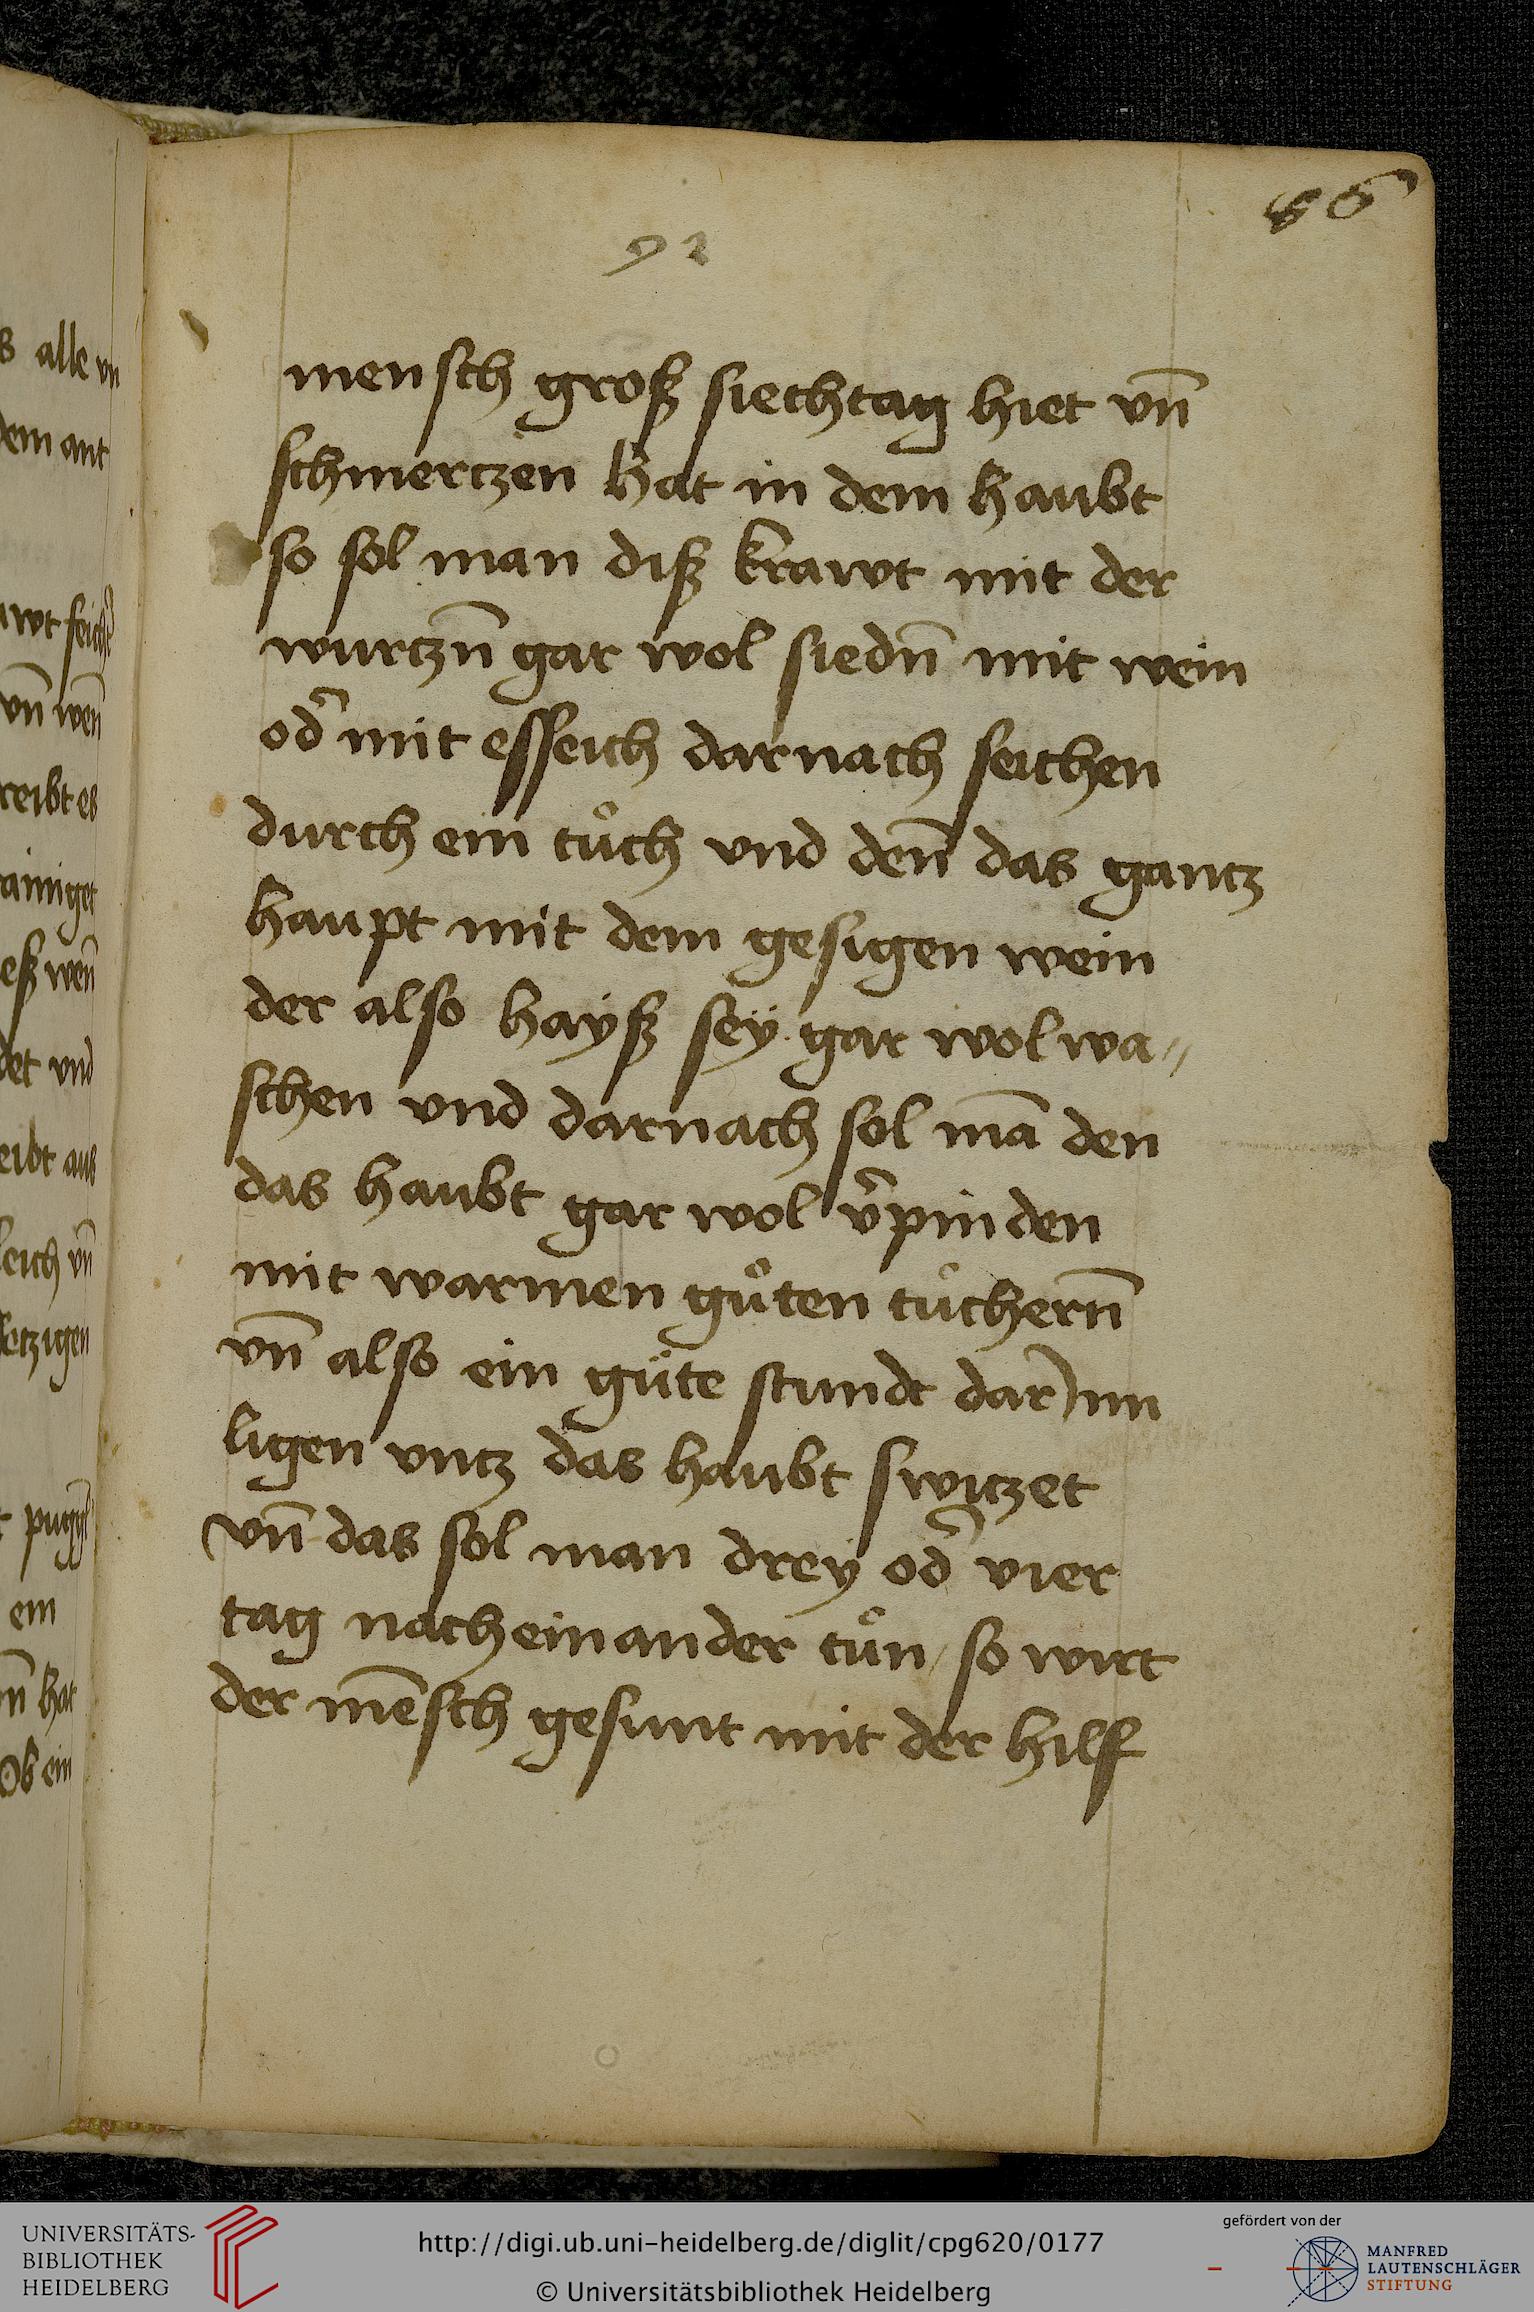 86
92
mensch groß siechtag hiet vn̄
schmerczen hat in dem haubt
so sol man diß krawt mit der
wurczn̄ gar wol siedn̄ mit wein
od̄ mit esseich darnach seichen
durch ein tůch vnd den̄ das gantz
haupt mit dem gesigen wein
der also hayß seÿ gar wol wa〃
schen vnd darnach sol mā den
das haubt gar wol v̄pinden
mit warmen gůten tůchern̄
vn̄ also ein güte stundt dar)nn
ligen vntz das haubt switzet
vn̄ das sol man dreÿ od̄ vier
tag nach einander tůn / so wirt
der mēsch gesunt mit der hilff
s alle vn
dem ant
awt
vn̄ wen̄
reibt es
rainiget
eß wen̄
det vnd
eibt aus
leich vn̄
etzigen
ein
n̄ hat
Ob ein
UNIVERSITÄTS-
BIBLIOTHEK
HEIDELBERG
http://digi.ub.uni-heidelberg.de/diglit/cpg620/0177
© Universitätsbibliothek Heidelberg
gefördert von der
MANFRED
LAUTENSCHLÄGER
STIFTUNG